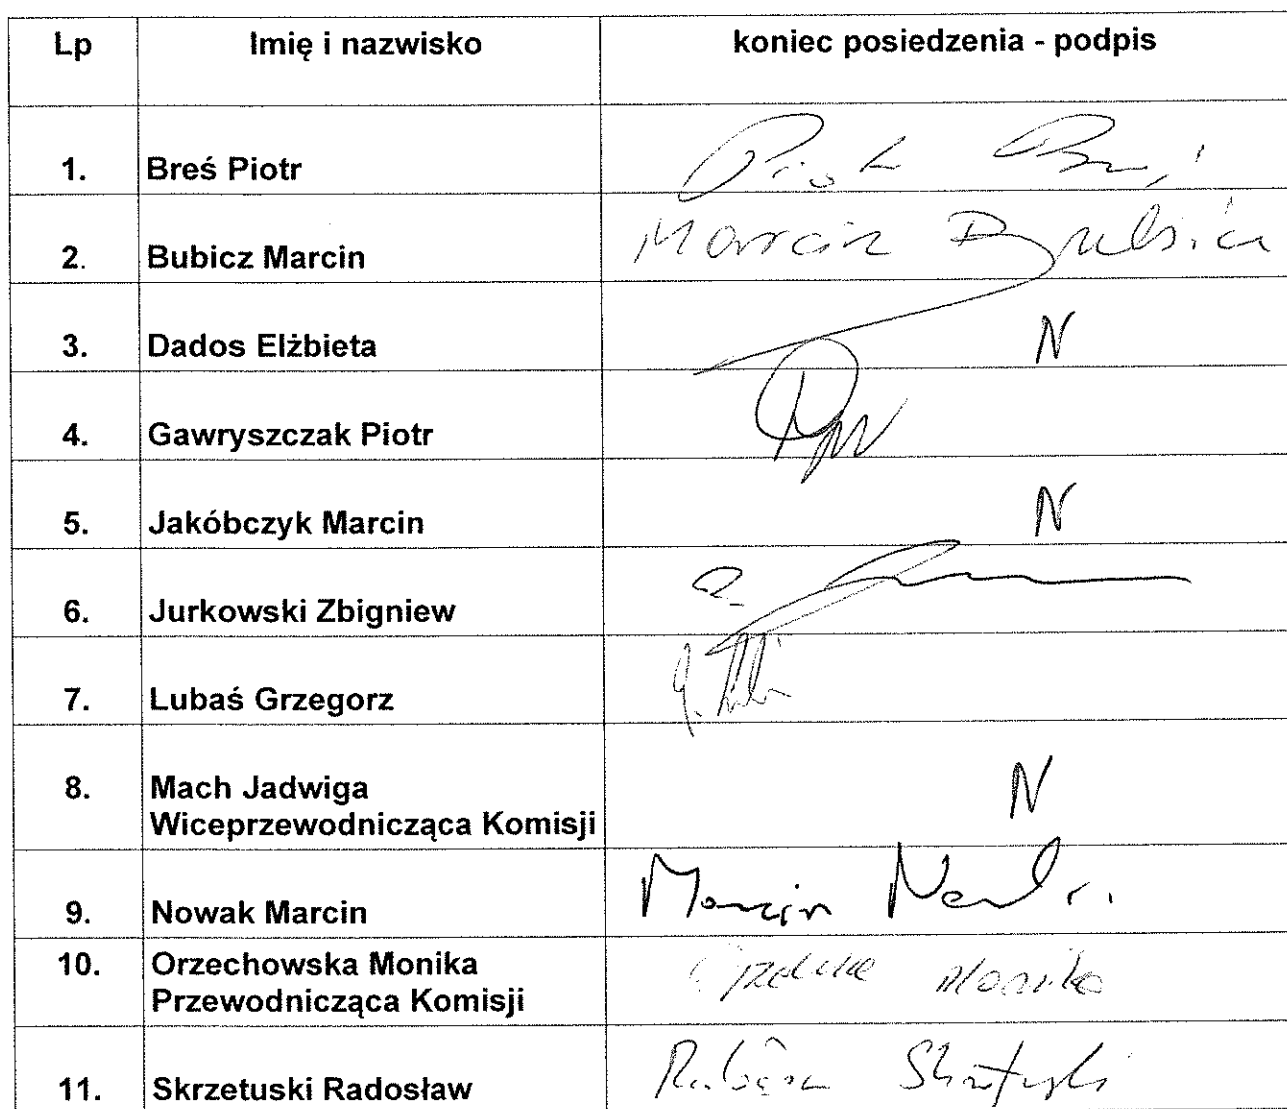 Lp Imię i nazwisko koniec posiedzenia - podpis
1. Breś Piotr Piotr Breś
2. Bubicz Marcin Marcin Bubicz
3. Dados Elżbieta N
4. Gawryszczak Piotr
5. Jakóbczyk Marcin N
6. Jurkowski Zbigniew
7. Lubaś Grzegorz
8. Mach Jadwiga N
Wiceprzewodnicząca Komisji
9. Nowak Marcin Marcin Nowak
10. Orzechowska Monika Monika
Przewodnicząca Komisji
11. Skrzetuski Radosław